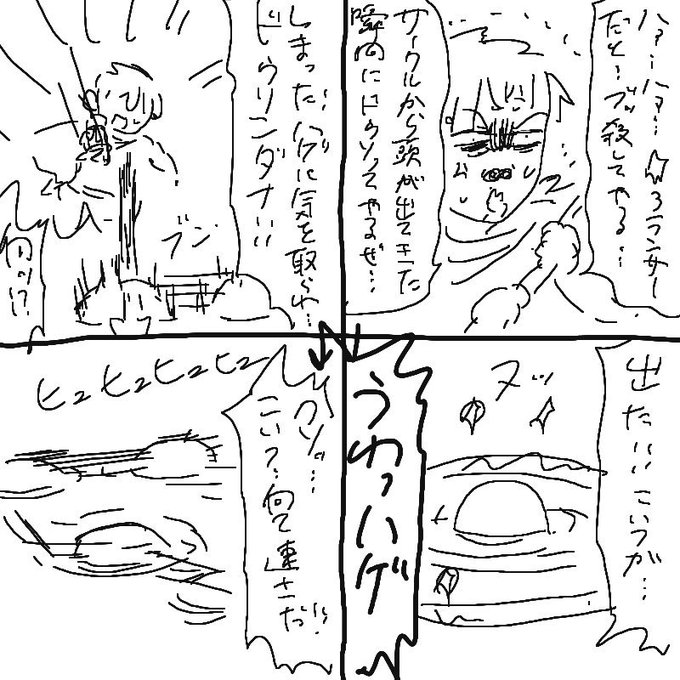 ハァ…ハァ…☆3ランサー
だと…ブッ殺してやる…
サークルから頭が出てきた
瞬間にドゥリってやるぜ…
出た!!こいつが…
ヌッ
うわっハゲ
しまった!ハゲに気を取られ…
ドゥリンダナ!!
ブン
クソッ…
こいつ…何て速さだ!!
ヒュヒュヒュヒュ